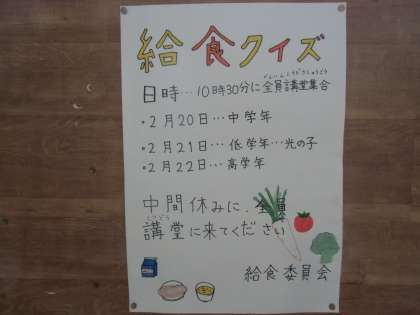 給食クイズ
日時…10時30分に全員講堂集合
・2月20日…中学年
・2月21日…低学年…光の子
・2月22日…高学年
中間休みに、全員
講堂に来てください
給食委員会